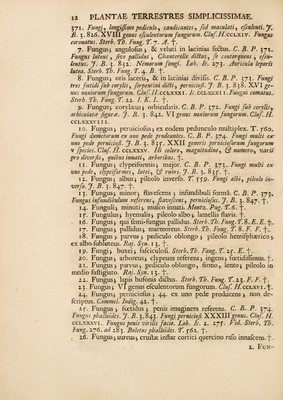 12 PLANTAE TERRESTRES SIMPLICISSIMAE.
371. Fungi, longissimo pediculo, candicantes, sed maculati, esculenti. J.
B. 3. 826. XVIII genus esculentorum fungorum. Clus. H. CCLXIV. Fungus
coronatus. Sterb. Th. Fung. T. 7. A. †.
7. Fungus; angulosus; & veluti in lacinias sectus. C. B. P. 371.
Fungus luteus, sive pallidus, Chanterelle dictus, se contorquens, escu-
lentus. J. B. 3. 832. Nemorum fungi. Lob. Ic. 273. Auricula leporis
lutea. Sterb. Th. Fung. T. 4. B. †.
8. Fungus; oris laceris, & in lacinias divisis. C. B. P. 373. Fungi
tres foetidi sub corylis, serpentibus dicti, perniciosi. J. B. 3. 838. XXI ge-
nus noxiorum fungorum. Clus. H. CCLXXXII. Fungus comatus.
Sterb. Th. Fung. T. 22. I. K. L. †.
9. Fungus; coryleus; orbicularis. C. B. P. 372. Fungi sub corylis,
orbiculatæ figuræ. J. B. 3. 842. VI genus noxiorum fungorum. Clus. H.
CCLXXVIII.
10. Fungus; perniciosus; ex eodem pedunculo multiplex. T. 560.
Fungi dumetorum ex uno pede prodeuntes. C. B. P. 374. Fungi multi ex
uno pede perniciosi. J. B. 3. 835. XXII generis perniciosorum fungorum
v species. Clus. H. CCLXXXV. Ab colore, magnitudine, & numero, varii
pro diversis, quibus innati, arboribus. †.
11. Fungus; clypeiformis; major. C. B. P. 373. Fungi multi ex
uno pede, clypeiformes, lutei, & rubri. J. B. 3. 835. †.
12. Fungus; albus; pileolo inverso. T. 559. Fungi albi, pileolo in-
verso. J. B. 3. 847. †.
13. Fungus; minor; flavescens; infundibuli formâ. C. B. P. 373.
Fungus infundibulum referens, flavescens, perniciosus. J. B. 3. 847. †.
14. Fungulus; minuti; musco innati. Mentz. Pug. T. 6. †.
15. Fungulus; hyemalis; pileolo albo; lamellis flavis. †.
16. Fungus; qui semi-fungus pallidus. Sterb. Th. Fung. T. 8. E. E. †.
17. Fungus; pallidus; marmoreus. Sterb. Th. Fung. T. 8. F. F. †.
18. Fungus; parvus; pediculo oblongo; pileolo hemisphærico;
ex albo subluteus. Raj. Syn. 13. †.
19. Fungi; buxei; fasciculosi. Sterb. Th. Fung. T. 25. E. †.
20. Fungus; arboreus; clypeum referens; ingens; foetidissimus. †.
21. Fungus; parvus; pediculo oblongo, firmo, lento; pileolo in
medio fastigiato. Raj. Syn. 13. †.
22. Fungus; lapis bufonis dictus. Sterb. Th. Fung. T. 23. F. F. †.
23. Fungus; VI genus esculentorum fungorum. Clus. H. CCLXVI. †.
24. Fungus; perniciosus; 44. ex uno pede producens; non de-
scriptus. Commel. Indig. 42. †.
25. Fungus; foetidus; penis imaginem referens. C. B. P. 374.
Fungus phalloides. J. B. 3. 843. Fungi perniciosi XXXIII genus. Clus. H.
CCLXXXVI. Fungus penis virilis facie. Lob. Ic. 2. 275. Vid. Sterb. Th.
Fung. 276. ad 283. Boletus phalloides. T. 562. †.
26. Fungus; aureus; crustæ instar cortici quercino raso innascens. †.
2. FUN-